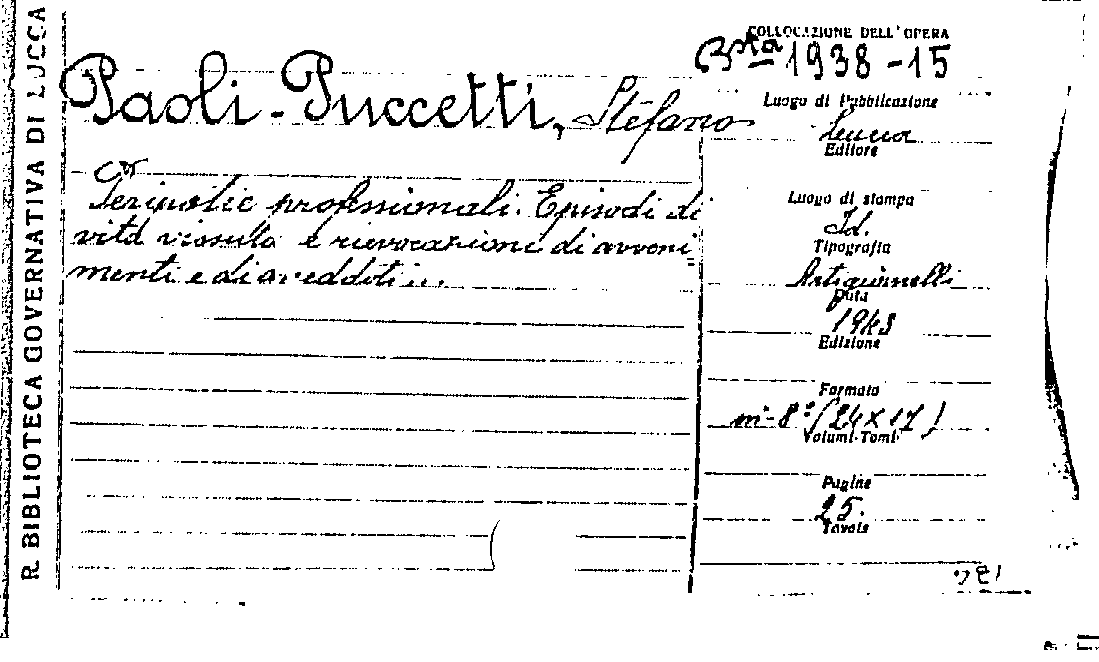 R. BIBLIOTECA GOVERNATIVA DI LUCCA
COLLOCAZIONE DELL'OPERA
Bsta 1938-15
Paoli-Puccetti, Stefano
Peripezie professionali. Episodi di
vita vissuta e rievocazione di avveni=
menti e di aneddoti...
Luogo di Pubblicazione
Lucca
Editore
Luogo di stampa
Id.
Tipografia
Artigianelli
Data
1943
Edizione
Formato
in-8° (24x17)
Volumi-Tomi
Pagine
25.
Tavole